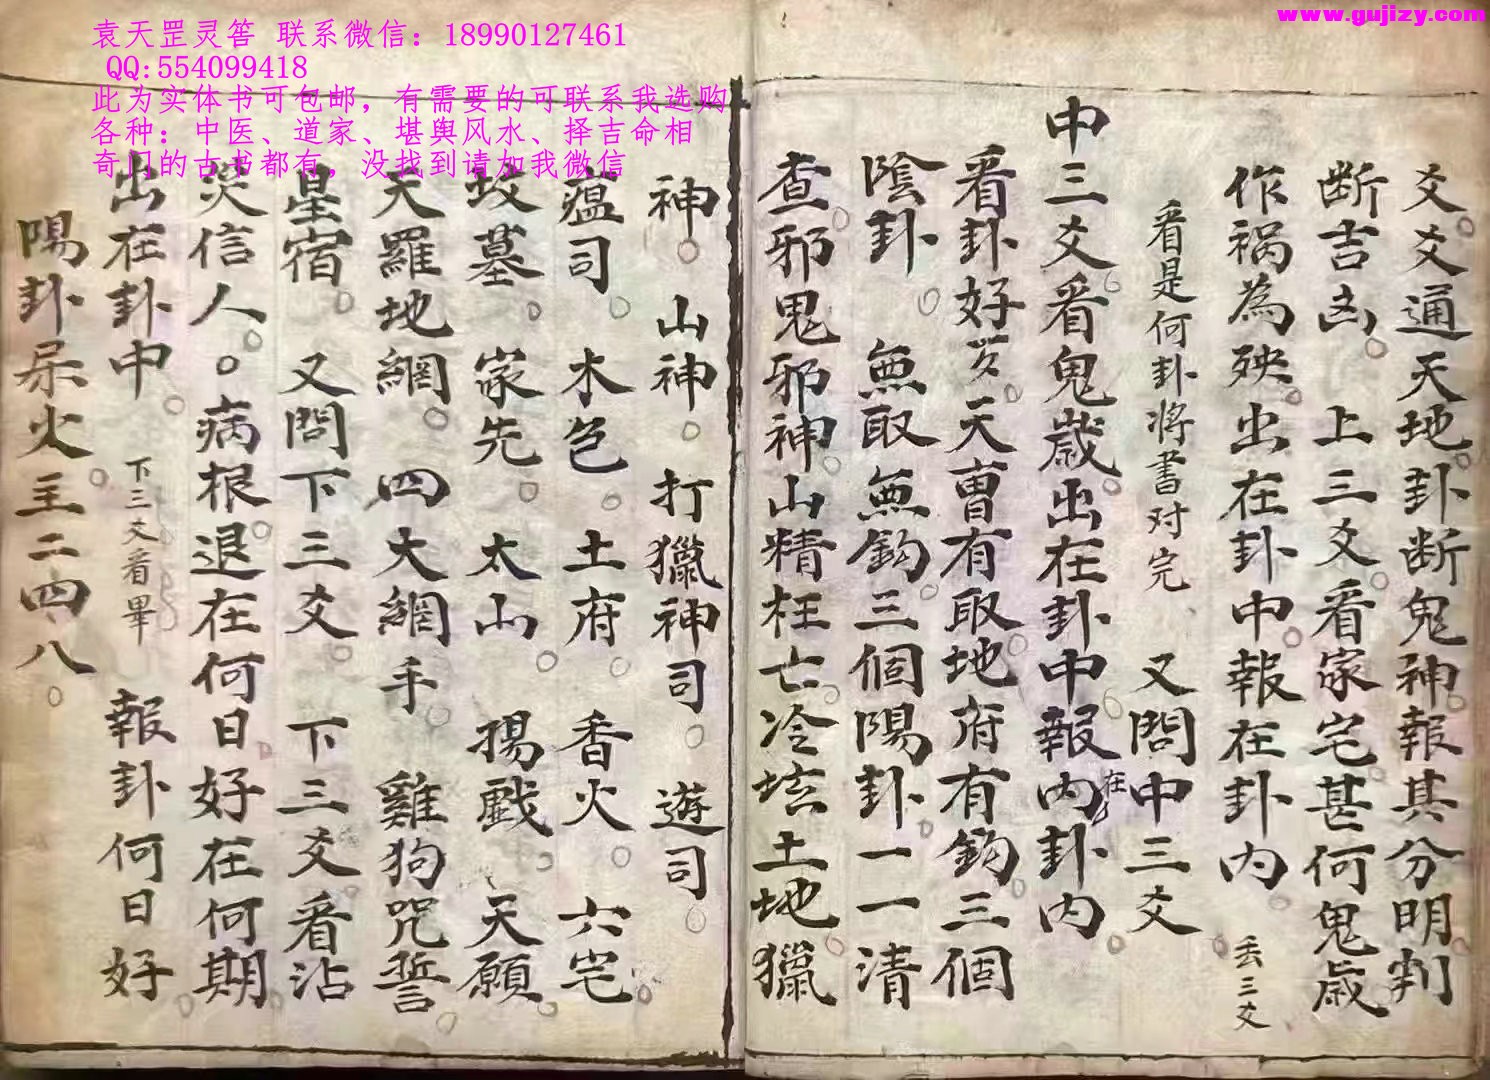 袁天罡灵笞 联系微信：18990127461
QQ:554099418
此为实体书可包邮，有需要的可联系我选购
各种：中医、道家、堪舆风水、择吉命相
奇门的古书都有，没找到请加我微信
www.gujizy.com
爻爻通天地卦断鬼神報其分明判
断吉凶 上三爻看家宅甚何鬼歳
作祸為殃出在卦中報在卦内 丢三爻
看是何卦将書对完 又問中三爻
中三爻看鬼歳出在卦中報在内卦内
看卦好歹天曹有取地府有鈎三個
陰卦 無取無鈎三個陽卦一一清
查邪鬼邪神山精枉亡冷坛土地獵
神 山神 打獵神司 遊司
瘟司 木邑 土府 香火 六宅
坟墓 家先 太山 揚戯 天願
天羅地網 四大網手 雞狗咒誓
星宿 又問下三爻 下三爻看沾
災信人。病根退在何日好在何期
出在卦中 下三爻看畢 報卦何日好
陽卦屬火主二四八